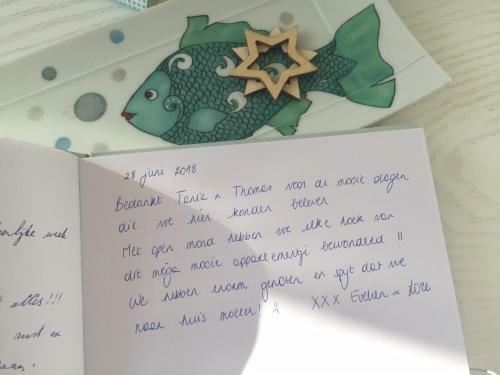 erlijke week
alles!!!
rust en
28 juni 2018
Bedankt Tania & Thomas voor de mooie dagen
die we hier konden beleven.
Met open mond hebben we elke hoek van
dit méga mooie appartementje bewonderd !!
We hebben enorm genoten en spijt dat we
naar huis moeten! :)
XXX Evelien & Lore